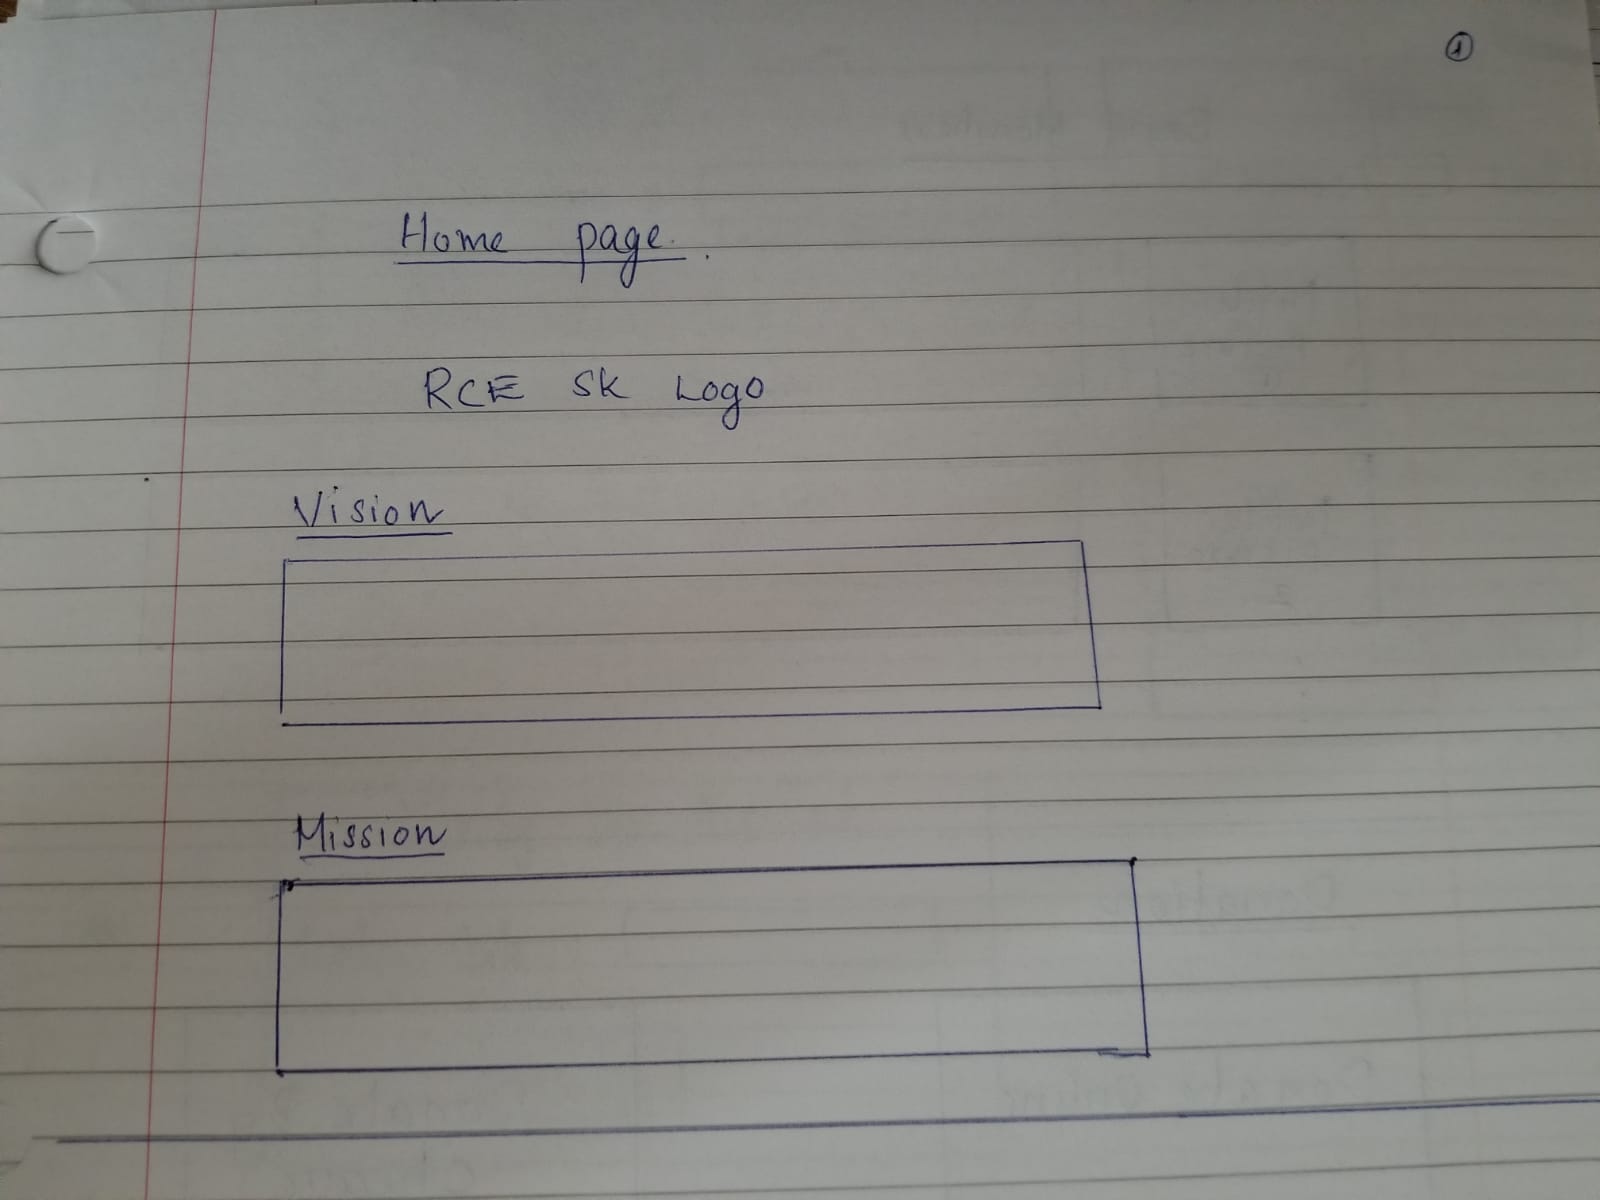 1
Home page.
RCE SK Logo
Vision
Mission